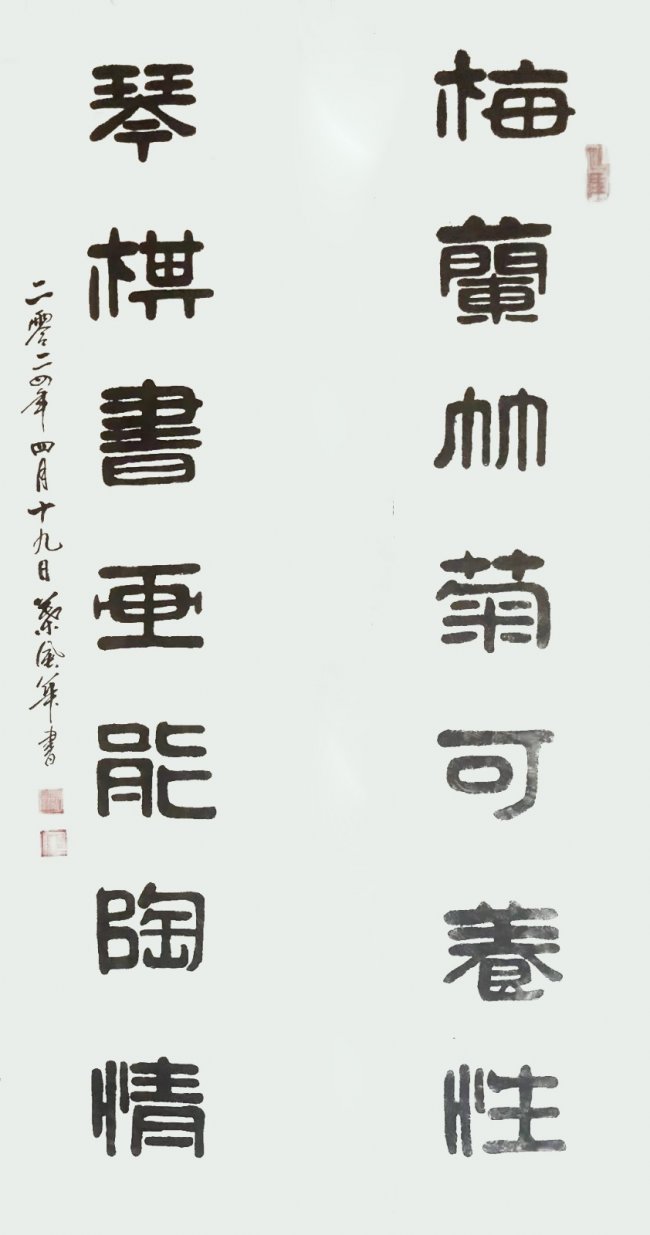 梅蘭竹菊可養性
琴棋書画能陶情
二零二四年四月十九日蔡風華書